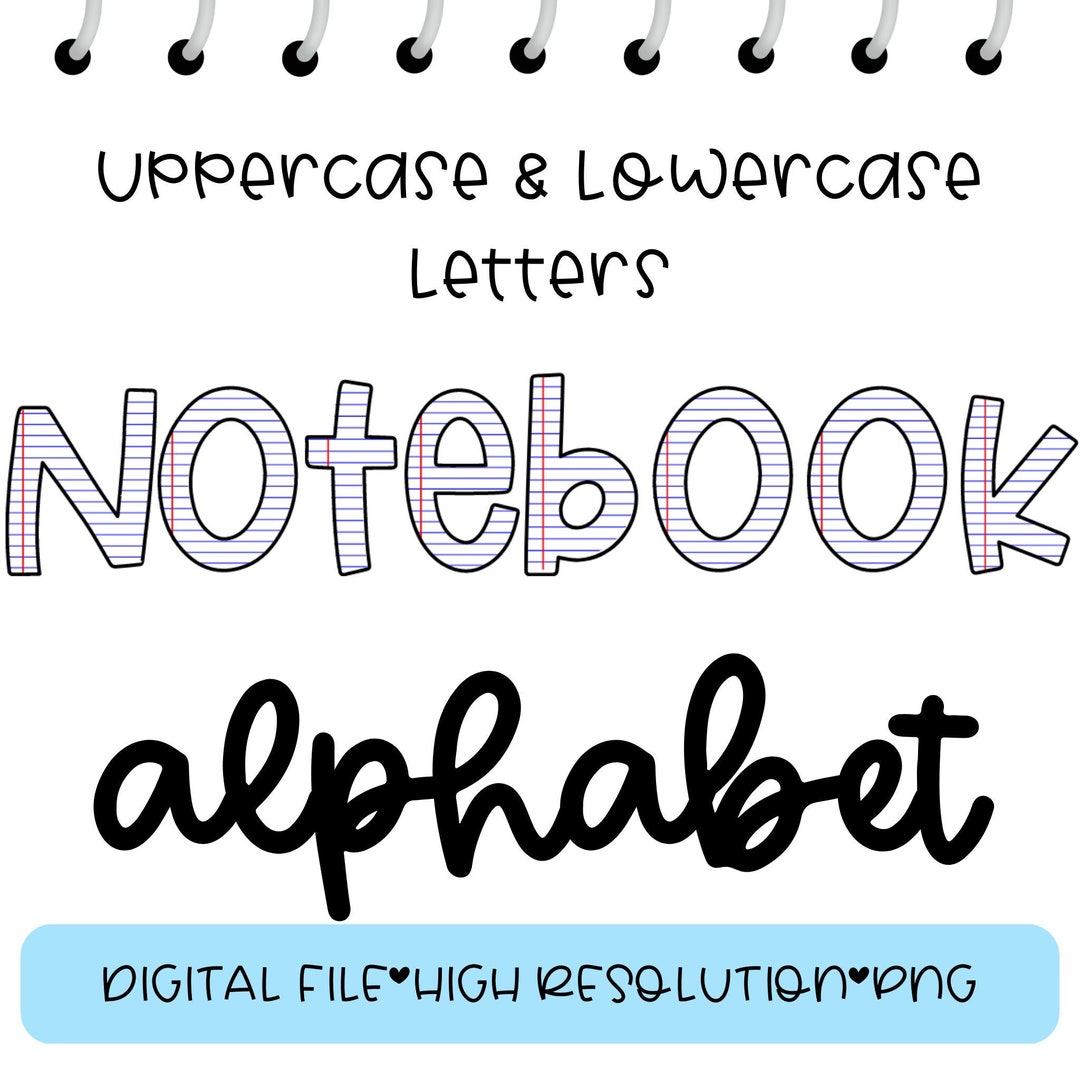 Uppercase & Lowercase
Letters
Notebook
alphabet
DIGITAL FILE♥HIGH RESOLUTION♥PNG